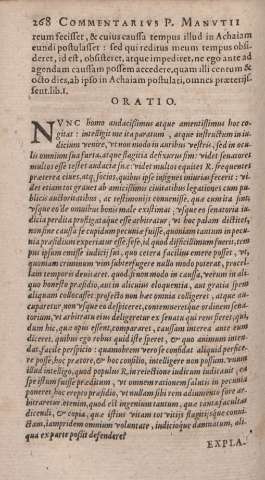 268 COMMENTARIVS P. MANVTII
reum fecisset, & cuius caussa tempus illud in Achaiam
eundi postulasset: sed qui reditus meum tempus obsi-
deret, id est, obsisteret, atque impediret, ne ego ante ad
agendam caussam possem accedere, quam illi centum &
octo dies, ab ipso in Achaiam postulati, omnes præterijs-
sent. lib. I.
ORATIO.
NVNC homo audacissimus atque amentissimus hoc co-
gitat: intelligit me ita paratum, atque instructum in iu-
dicium venire, vt non modo in auribus vestris, sed in ocu-
lis omnium sua furta, atque flagitia defixurus sim: videt senatores
multos esse testes audaciæ suæ: videt multos equites R. frequentes
præterea ciues, atq; socios, quibus ipse insignes iniurias fecerit: vi-
det etiam tot graues ab amicissimis ciuitatibus legationes cum pu-
blicis auctoritatibus, ac testimonijs conuenisse. quæ cum ita sint,
vsque eo de omnibus bonis male existimat, vsque eo senatoria iu-
dicia perdita profligataque esse arbitratur, vt hoc palam dictitet,
non sine caussa se cupidum pecuniæ fuisse, quoniam tantum in pecu-
nia præsidium experiatur esse: sese, id quod difficillimum fuerit, tem
pus ipsum emisse iudicij sui, quo cetera facilius emere posset, vt,
quoniam criminum vim subterfugere nullo modo poterat, procel-
lam temporis deuitaret. quod si non modo in caussa, verum in ali-
quo honesto præsidio, aut in alicuius eloquentia, aut gratia spem
aliquam collocasset profecto non hæc omnia colligeret, atque au-
cuparetur non vsque eo despiceret, contemneretque ordinem sena-
torium, vt arbitratu eius deligeretur ex senatu qui reus fieret: qui,
dum hic, quæ opus essent, compararet, caussam interea ante eum
diceret. quibus ego rebus quid iste speret, & quo animum inten-
dat, facile perspicio: quamobrem vero se confidat aliquid perfice-
re posse, hoc prætore, & hoc consilio, intelligere non possum. vnum
illud intelligo, quod populus R. in reiectione iudicum iudicauit, ea
spe istum fuisse præditum, vt omnem rationem salutis in pecunia
poneret hoc erepto præsidio, vt nullam sibi rem adiumento fore ar-
bitraretur. etenim, quod est ingenium tantum, quæ tanta facultas
dicendi, & copia, quæ istius vitam tot vitijs flagitijsque conui-
ctam, iampridem omnium voluntate, iudicioque damnatam, ali-
qua ex parte possit defendere?
EXPLA-